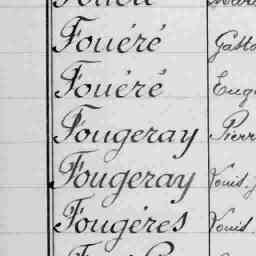 Fouéré
Fouéré Eug
Fougeray Pierr
Fougeray Louis. J
Fougéres Louis.